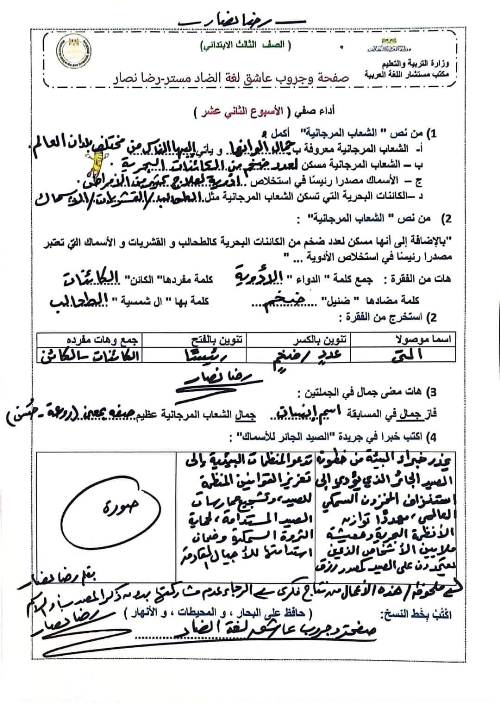 رضا نصار
( الصف الثالث الابتدائي )
وزارة التربية والتعليم
مكتب مستشار اللغة العربية
صفحة وجروب عاشق لغة الضاد مستر-رضا نصار
أداء صفي ( الأسبوع الثاني عشر )
1) من نص " الشعاب المرجانية" أكمل :
أ- الشعاب المرجانية معروفة بـ جمال ألوانها و يأتي إليها الناس من مختلف بلدان العالم.
ب – الشعاب المرجانية مسكن لعدد ضخم من الكائنات البحرية
ج – الأسماك مصدرا رئيسًا في استخلاص أدوية لعلاج كثير من الأمراض
د –الكائنات البحرية التي تسكن الشعاب المرجانية مثل الطحالب/القشريات/الأسماك
2) من نص " الشعاب المرجانية" :
"بالإضافة إلى أنها مسكن لعدد ضخم من الكائنات البحرية كالطحالب و القشريات و الأسماك التي تعتبر
مصدرا رئيسًا في استخلاص الأدوية ... "
هات من الفقرة : جمع كلمة " الدواء " الأدوية كلمة مفردها" الكائن" الكائنات
كلمة مضادها " ضئيل" ضخم كلمة بها " ال شمسية " الطحالب
2) استخرج من الفقرة :
اسما موصولا تنوين بالكسر تنوين بالفتح جمع وهات مفرده
التي عددٍ/ضخمٍ رئيسًا الكائنات - الكائن
رضا نصار
3) هات معنى جمال في الجملتين :
فاز جمال في المسابقة اسم إنسان جمال الشعاب المرجانية عظيم صفة بمعنى (روعة - حُسن)
4) اكتب خبرا في جريدة "الصيد الجائر للأسماك" :
يحذر خبراء البيئة من خطورة
الصيد الجائر الذي يؤدي إلى
استنزاف المخزون السمكي
العالمي، مهددًا توازن
الأنظمة البحرية ومعيشة
ملايين الأشخاص الذين
يعتمدون على الصيد كمصدر رزق
تدعو المنظمات البيئية إلى
تعزيز القوانين المنظمة
للصيد، وتشجيع ممارسات
الصيد المستدامة، لحماية
الثروة السمكية وضمان
استدامتها للأجيال القادمة
صورة
بقلم رضا نصار
ملحوظة/ هذه الأعمال من نتاج فكري الرجاء عدم مشاركتها بدون ذكر المصدر
رضا نصار
اكتُب بخط النسخ: ( حافظ على البحار ، و المحيطات ، و الأنهار )
صفحة وجروب عاشق لغة الضاد